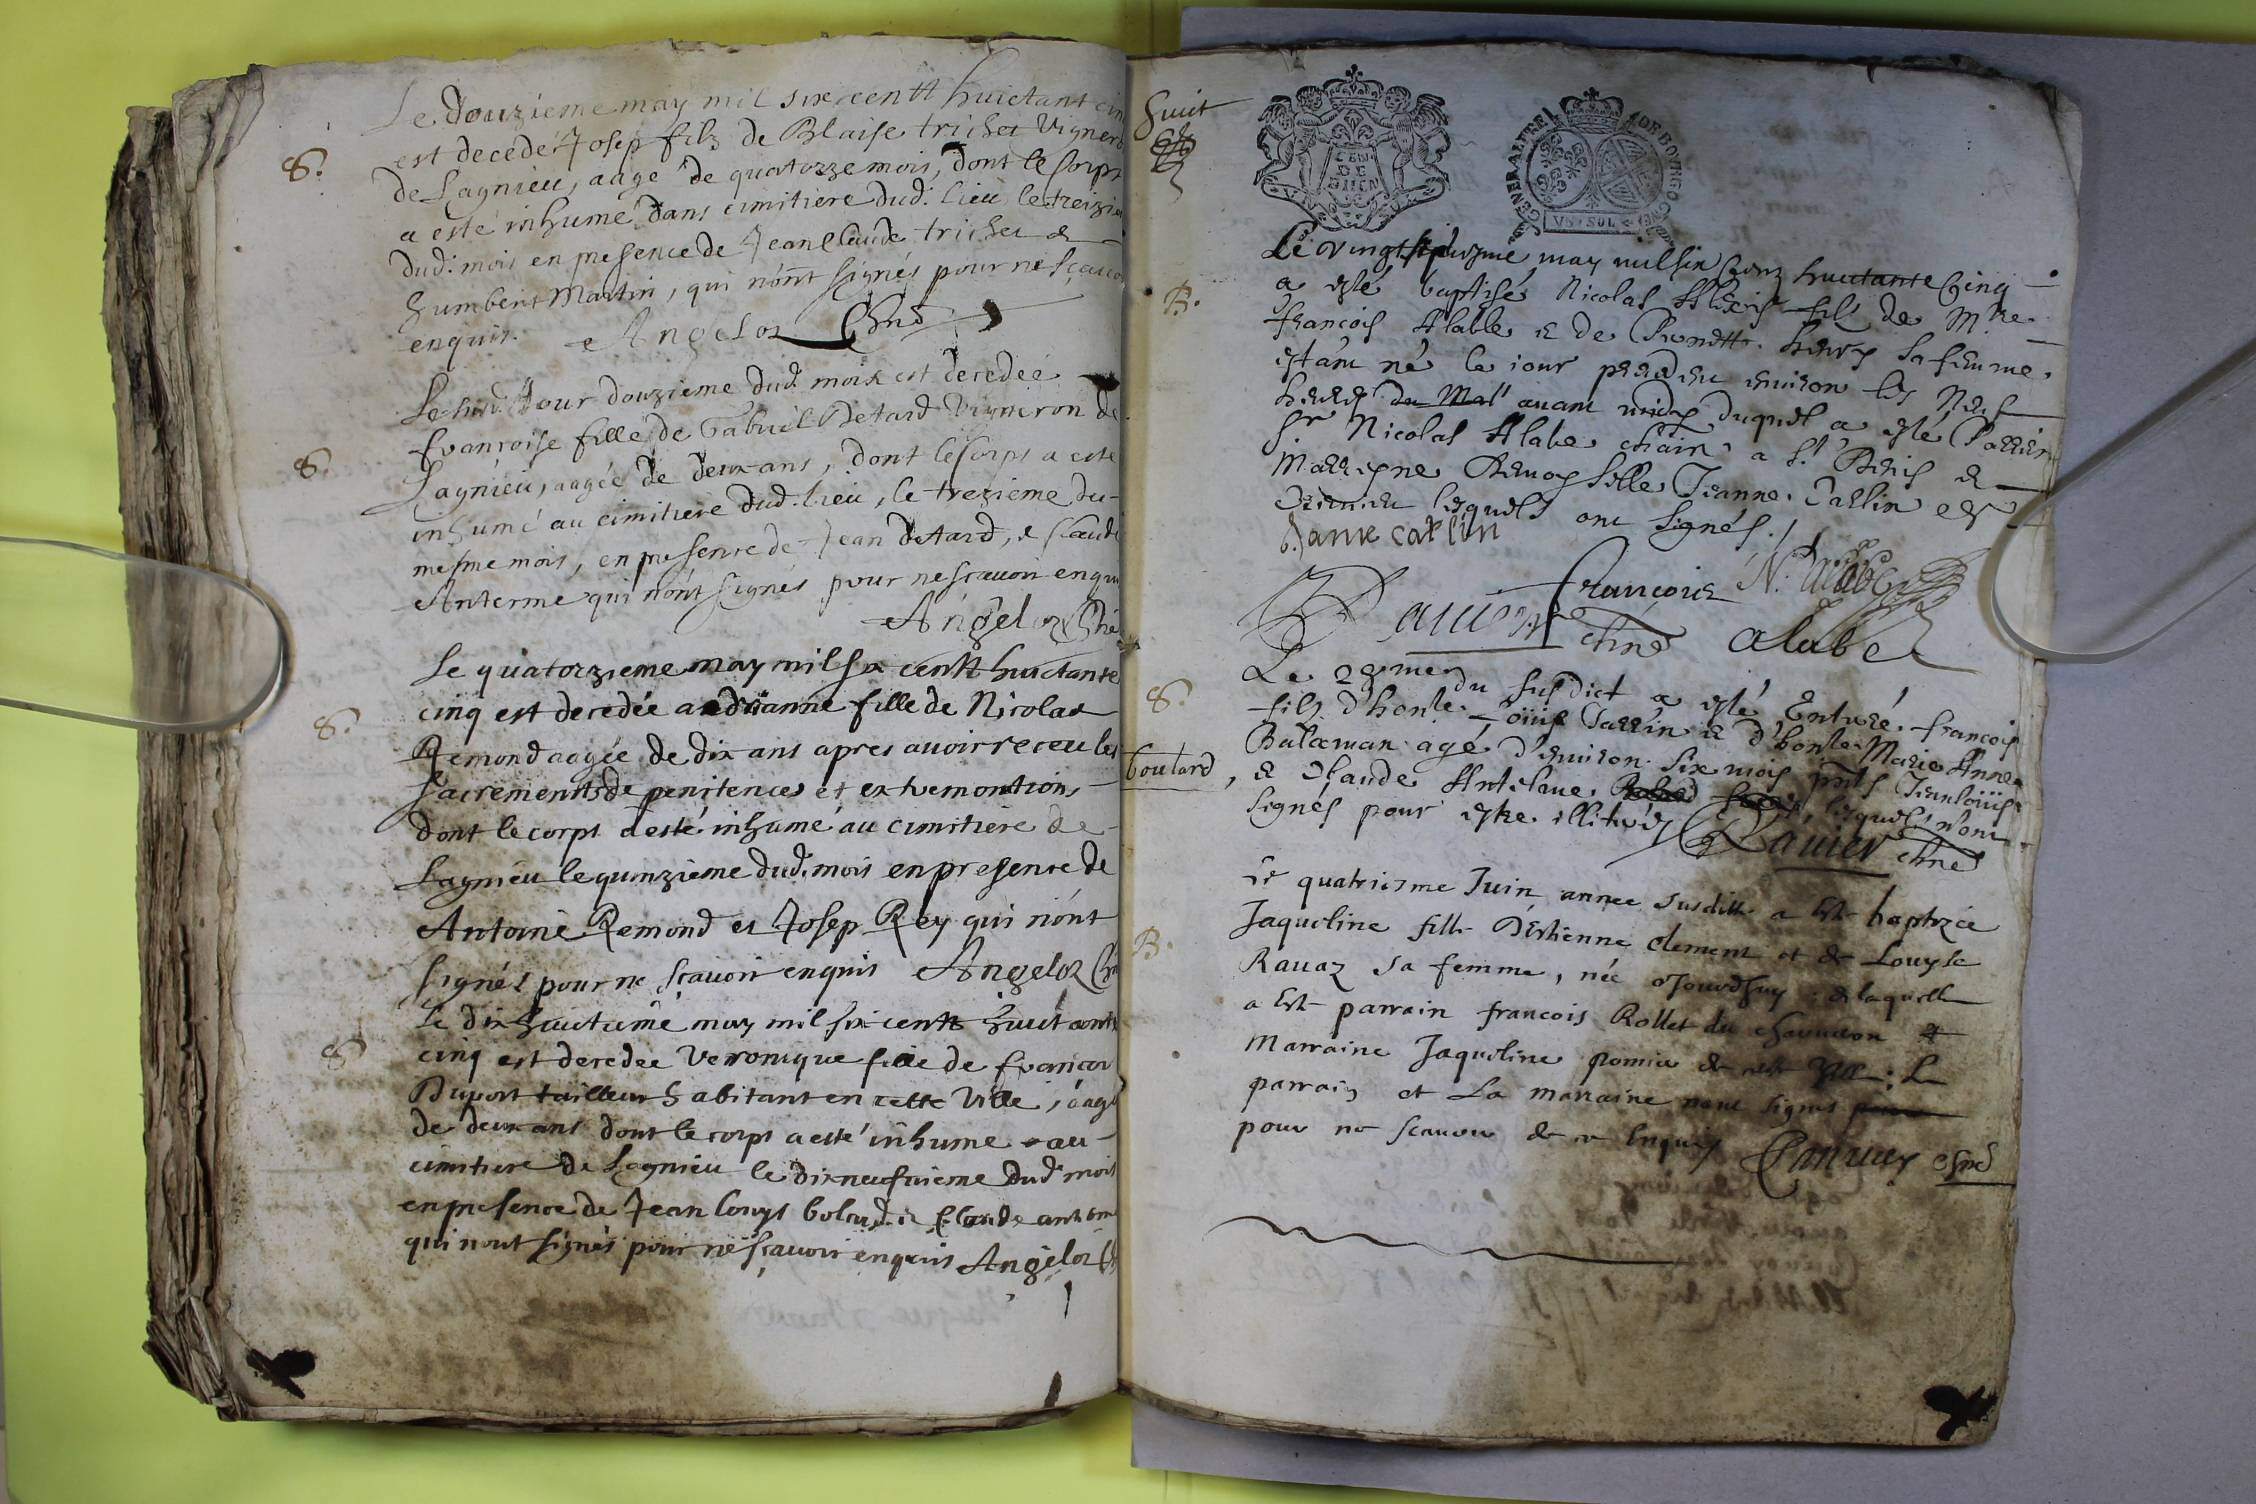 Le douzieme may mil six centt huictant cin
S.
est decedé Josep filz de Blaise trichet Vignero
de Lagnieu, aagé de quatorze mois, dont le Corps
a esté inhumé dans cimitiere dud. lieu le treizie
dud. mois en presence de Jean Claude trichet &
humbert Martin, qui n'ont signés pour ne sçavoi
enquis. Angeloz Chne
Le jour douzieme dud. mois est decedée
françoise fille de Gabriel Betard Vigneron de
S.
Lagnieu, aagée de deux ans, dont le Corps a esté
inhumé au cimitiere dud. lieu, le trezieme du
mesme mois, en presence de Jean Betard, & Claude
Anterme qui n'ont signés pour ne sçavoir enqui
Angeloz Chne
Le quatorzieme may mil six centt huictante
S.
cinq est decedée andrianne fille de Nicolas
Remond aagée de dix ans apres avoir receu les
sacrements de penitence et extremontions
dont le corps a esté inhumé au cimitiere de
Lagnieu le quinzieme dud. mois en presence de
Antoine Remond et Josep Rey qui n'ont
signés pour ne sçavoir enquis Angeloz Ch
Le dix huictieme may mil six centt huictante
S.
cinq est decedée Veronique fille de françois
Duport tailleur habitant en cette Ville, aagé
de deux ans dont le corps a esté inhumé au
cimitiere de Lagnieu le dix neufvieme dud. mois
en presence de Jean Louys & Claude
qui n'ont signés pour ne sçavoir enquis Angeloz Ch
Suit
GENERALITE DE BOVRGOGNE
VN SOL
Le may mil six Cens huictante Cinq
B.
a esté baptisé Nicolas Alexis fils de Mre
françois Alabe & de Henry sa femme
estant né le jour precedent environ les Neuf
heures du Mat avant midy duquel a esté Parrin
Sr Nicolas Alabe a St &
Marreyne Damoyselle Jeanne Carlin
lesquels ont signés.
Janne carlin
françois N. Alabe
Ravier chne alabe
Le du susdict a esté Enterré françois
S.
fils d'honle Louys & d'honle Marie Anne
Balaman agé d'environ six mois pnts Jeanlouis
boulard, & Claude Antelme, lesquels n'ont
signés pour estre illiterés Ravier chne
Le quatriesme Juin annee susditte a esté baptizée
B.
Jaqueline fille D'Estienne Clement et de Louyse
Ravaz sa femme, née Jourdhuy: de laquelle
a esté parrain francois Rollet du et
Marraine Jaqueline de Ville; Le
parrain et La marraine nont signés
pour ne scavoir de ce Enquis chne